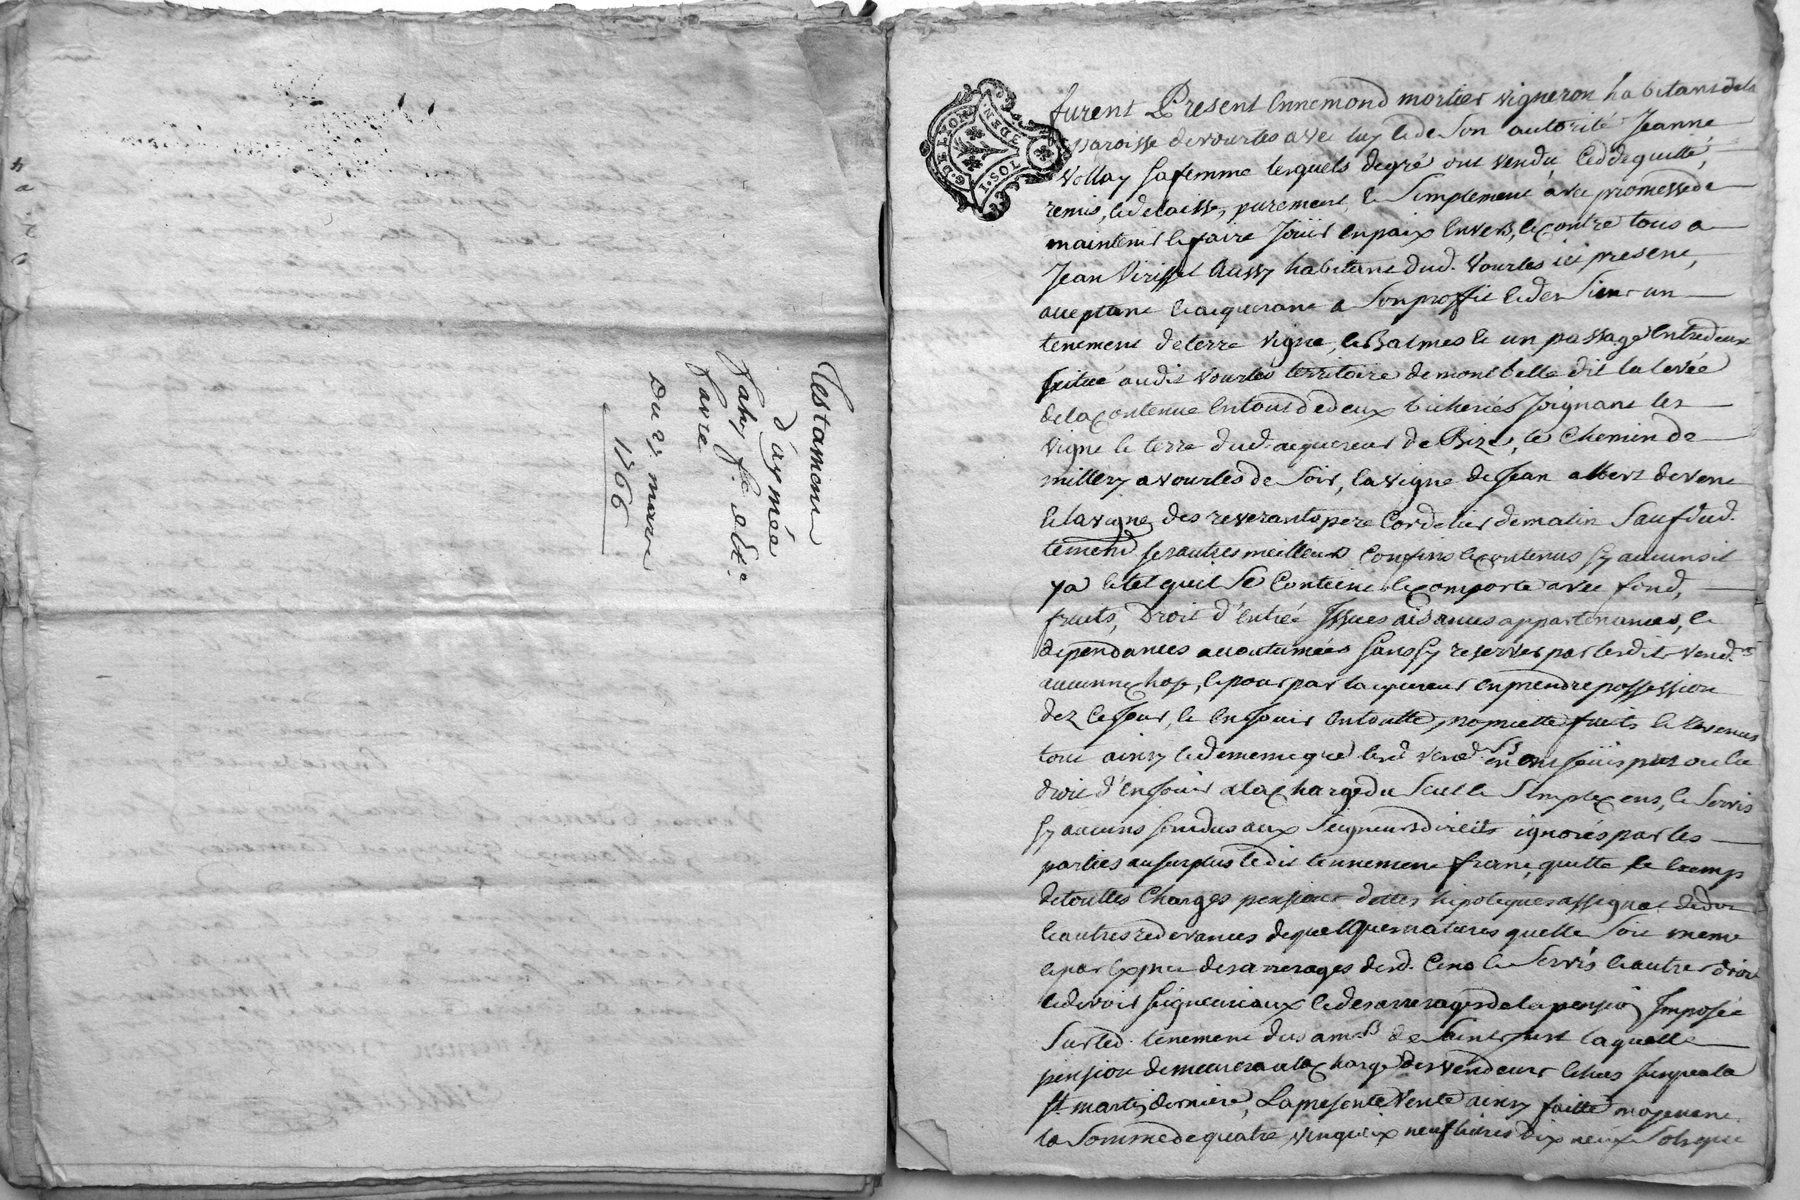 Testament
d'aymée
faby fe. d'Ete.
favre
Du 21 mars
1766
G. DE LYON
I. SOL 3 DEN
furent Present Ennemond mortier vigneron habitant de la
paroisse de vourles avec luy et de Son autorité Jeanne
Vollay sa femme lesquels de gré ont vendu, ceddé quitté,
remis, et delaissé, purement, et Simplement avec promesse de
maintenir et faire Jouir en paix Envers, et contre tous a
Jean aussy habitant dud. Vourles ici present,
acceptant et acquerant a Son proffit et des Siens un
tenement de terre vigne, et Balmes et un passage Entredeux
scitué audit Vourles territoire de montbelle dit la levée
de la Contenue En tout de deux bicherées Joignant les
vigne et terre dud. acquereur de Bize, le Chemin de
millery a vourles de Soir, la vigne de Jean albert de vent
et la vigne des reverants pere Cordelier de matin Sauf dud.
tement ses autres meilleurs Confins et contenus sy aucuns il
y a et tel quil Se Contient et Comporte avec fond,
fruits, Droit d'Entrée Issues aisances appartenances, et
dependances accoutumées sans sy reserver par lesdits vend.rs
aucunne chose, et pour par lacquereur en prendre possession
dez ce Jour, et en Jouir en toutte proprietté fruits et Revenus
tout ainsy et de meme que lesd. vend.rs en ont Joüis pus ou eu
droit d'en Jouir a la Charge du Seul et Simple Cens, et Servis
sy aucuns sont dus aux Seigneurs directs ignorés par les
parties au surplus ledit tennement franc, quitte et Exempt
de touttes Charges pensions dettes hipoteques assignat de dot
et autres redevances de quelque natures quelle Soit meme
et par Exprez des arrerages desd. Cens et Servis et autres droit
et devoirs Seigneuriaux et des arrerages de la pension Imposée
Sur led. tenement de Saint Just laquelle
pension demeurera a la Charge des vendeurs Echus Jusqua la
St. martin derniere, La presente vente ainsy faitte moyenent
la Somme de quatre vingt dix neuf livres dix neuf Sols que